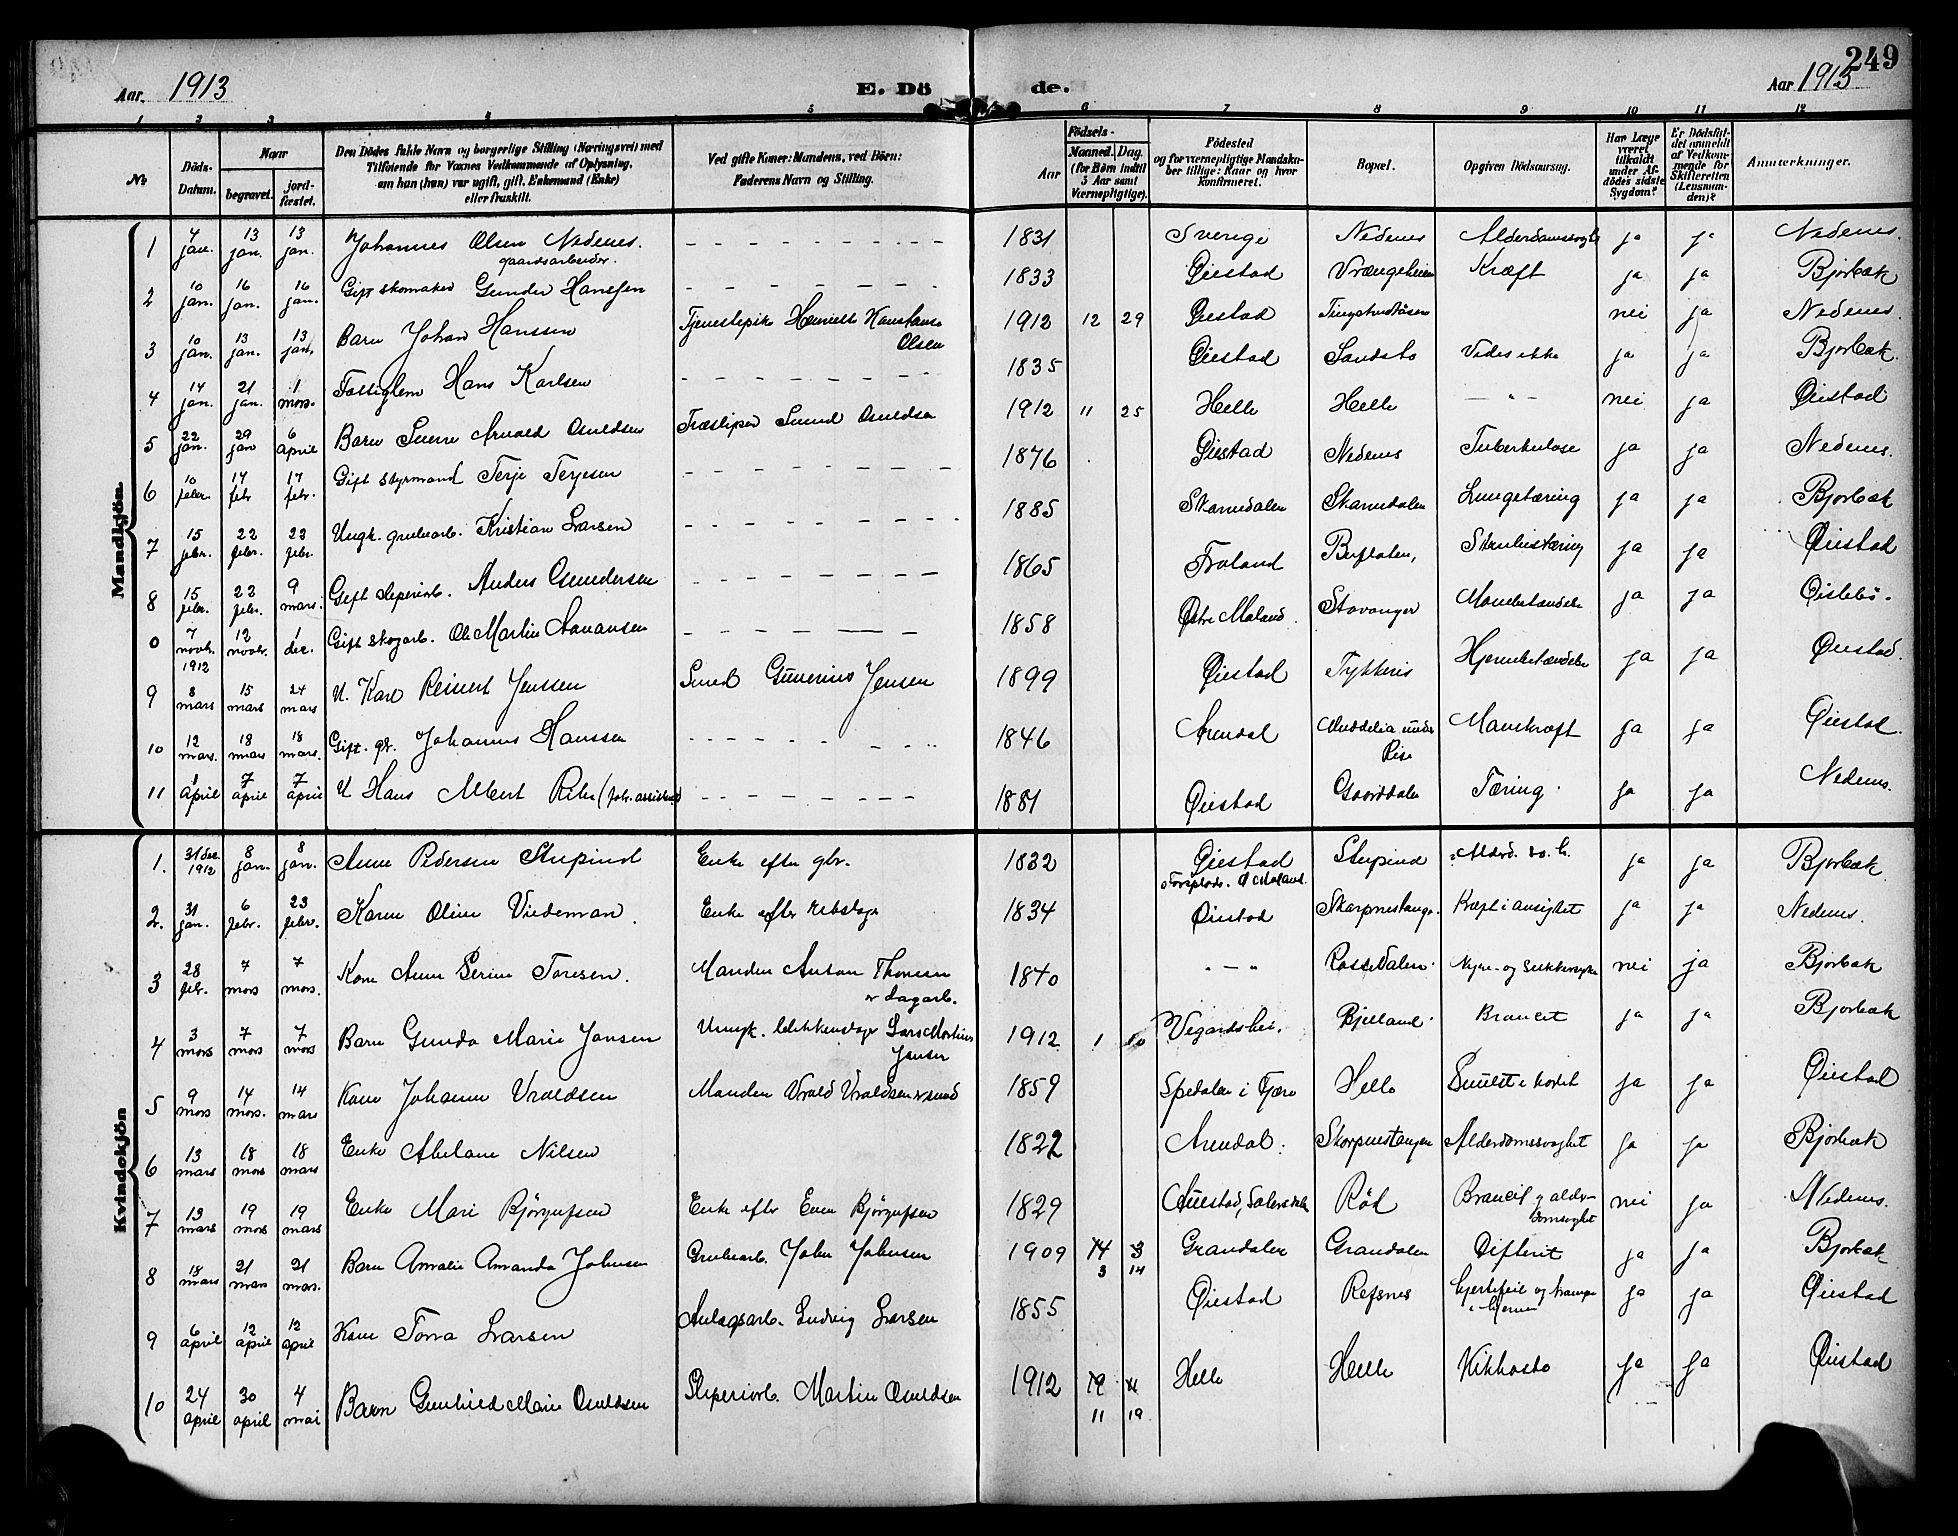 249
Aar 1913 E. Dö de. Aar 1913
1 2 3 4 5 6 7 8 9 10 11 12
No.
Döds-Datum.
Naar
begravet.
jord-fæstet.
Den Dödes fulde Navn og borgerlige Stilling (Næringsvei) med
Tilföiende for Voxnes Vedkommende af Oplysning,
om han (hun) var ugift, gift, Enkemand (Enke)
eller fraskilt.
Ved gifte Koner: Mandens, ved Börn:
Faderens Navn og Stilling.
Födsels-
Aar
Maaned. Dag.
(for Børn indtil
5 Aar samt
Værnepligtige).
Födested
og for værnepligtige Mandska-
ber tillige: Naar og hvor
konfirmeret.
Bopæl.
Opgiven Dödsaarsag.
Har Læge
været
tilkaldt
under Af-
dödes sidste
Sygdom?
Er Dödsfal-
det anmeldt
af Vedkom-
mende for
Skifteretten
(Lensman-
den)?
Anmerkninger.
Mandkjön.
1 4 jan. 13 jan. 13 jan. Johannes Olsen Nedenes. gaardsarbeider. 1831 Sverige Nedenes ja ja Nedenes.
2 10 jan. 16 jan. 16 jan. Gift skomaker Gunder Hanssen 1833 Øiestad Vrængeheien Kræft ja ja Bjorbæk
3 10 jan. 13 jan. 13 jan. Barn Johan Hanssen Tjenestepike Olsen 1912 12 29 Øiestad nei ja Nedenes.
4 14 jan. 21 jan. 1 mars. Fattiglem Hans Karlsen 1835 Øiestad Sandsto Vides ikke ja ja Bjorbæk.
5 22 jan. 29 jan 6 april Barn Arvald Osuldsen Træsliper Osuldsen 1912 11 25 Helle Helle — " — nei ja Øiestad
6 10 febr. 14 febr 17 febr. Gift styrmand Terje Terjesen 1876 Øiestad Nedenes Tuberkulose ja ja Nedenes.
7 15 febr. 22 febr. 23 febr. Ungk. grubearb. Kristian Larsen 1885 Skarvedalen Skarvedalen Lungetæring ja ja Bjorbæk
8 15 febr. 22 febr. 9 mars. Gift sliperiarb. Anders Gundersen 1865 Froland ja ja Øiestad
0 7 novbr. 1912 12 novbr. 1 dec. Gift skogarb. Ole Martin Aanansen 1858 Østre Moland Stavanger ja ja Øislebø.
9 8 mars 15 mars 24 mars U. Karl Reinert Jenssen Smed Gunerius Jensen 1899 Øiestad Hjernebetændelse ja ja Øiestad.
10 12 mars. 18 mars 18 mars. Gift. gbr. Johannes Hanssen 1846 Arendal under Rise Mavekræft ja ja Øiestad.
11 1 april 7 april 7 april U Hans Albert 1881 Øiestad Gaarddalen Tæring. ja ja Nedenes.
Kvindekjön
1. 31 dec. 1912 8 jan. 8 jan. Anne Pedersen Stupind Enke efter gbr. 1832 Øiestad Stupind ja ja Bjorbæk
2. 31 jan. 6 febr. 23 febr. Karen Oline Viedeman. Enke efter 1834 Øiestad Kræft i ansigtet ja ja Nedenes.
3 28 febr. 7 mars 7 mars. Kone Anne Serine Toresen. Manden Anton Thoresen er dagarb. 1840 " — " nei ja Bjorbæk
4 3 mars 7 mars 7 mars Barn Gunda Marie Jansen Lars Martin Jansen 1912 1 Vegardshei. Bjelland. Broncit ja ja Bjorbæk
5 9 mars 14 mars. 14 mars Kone Johanne Vraldsen Manden Vrald Vraldsen er smed 1859 Spedalen i Fjære Helle ja ja Øiestad
6 13 mars 18 mars 18 mars Enke Abelone Nilsen 1822 Arendal. Skarpnestangen Alderdomssvaghet ja ja Bjorbæk
7 13 mars 19 mars 19 mars Enke Mari Bjørgufsen Enke efter Even Bjørgufsen 1829 Rød Broncit og alder-domssvaghet nei ja Nedenes.
8 18 mars 21 mars 21 mars. Barn Amalie Amanda Johnsen Grubearb. John Johnsen 1909 14 3 3 14 Grandalen Grandalen Difterit ja ja Bjorbæk
9 6 april 12 april 12 april Kone Torra Larsen Anlægsarb. Ludvig Larsen 1855 Øiestad Refsnes Hjertefeil og i hjernen ja ja Øiestad
10 24 april 30 april 4 mai Barn Gunhild Marie Osuldsen Sliperiarb. Martin Osuldsen 1912 19 11 11 19 Helle Helle Kikhoste ja ja Øiestad